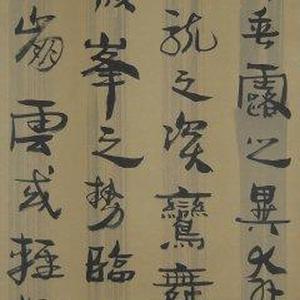 垂露之異奔
駭之資鸞舞
峯之勢臨
崩雲或輕